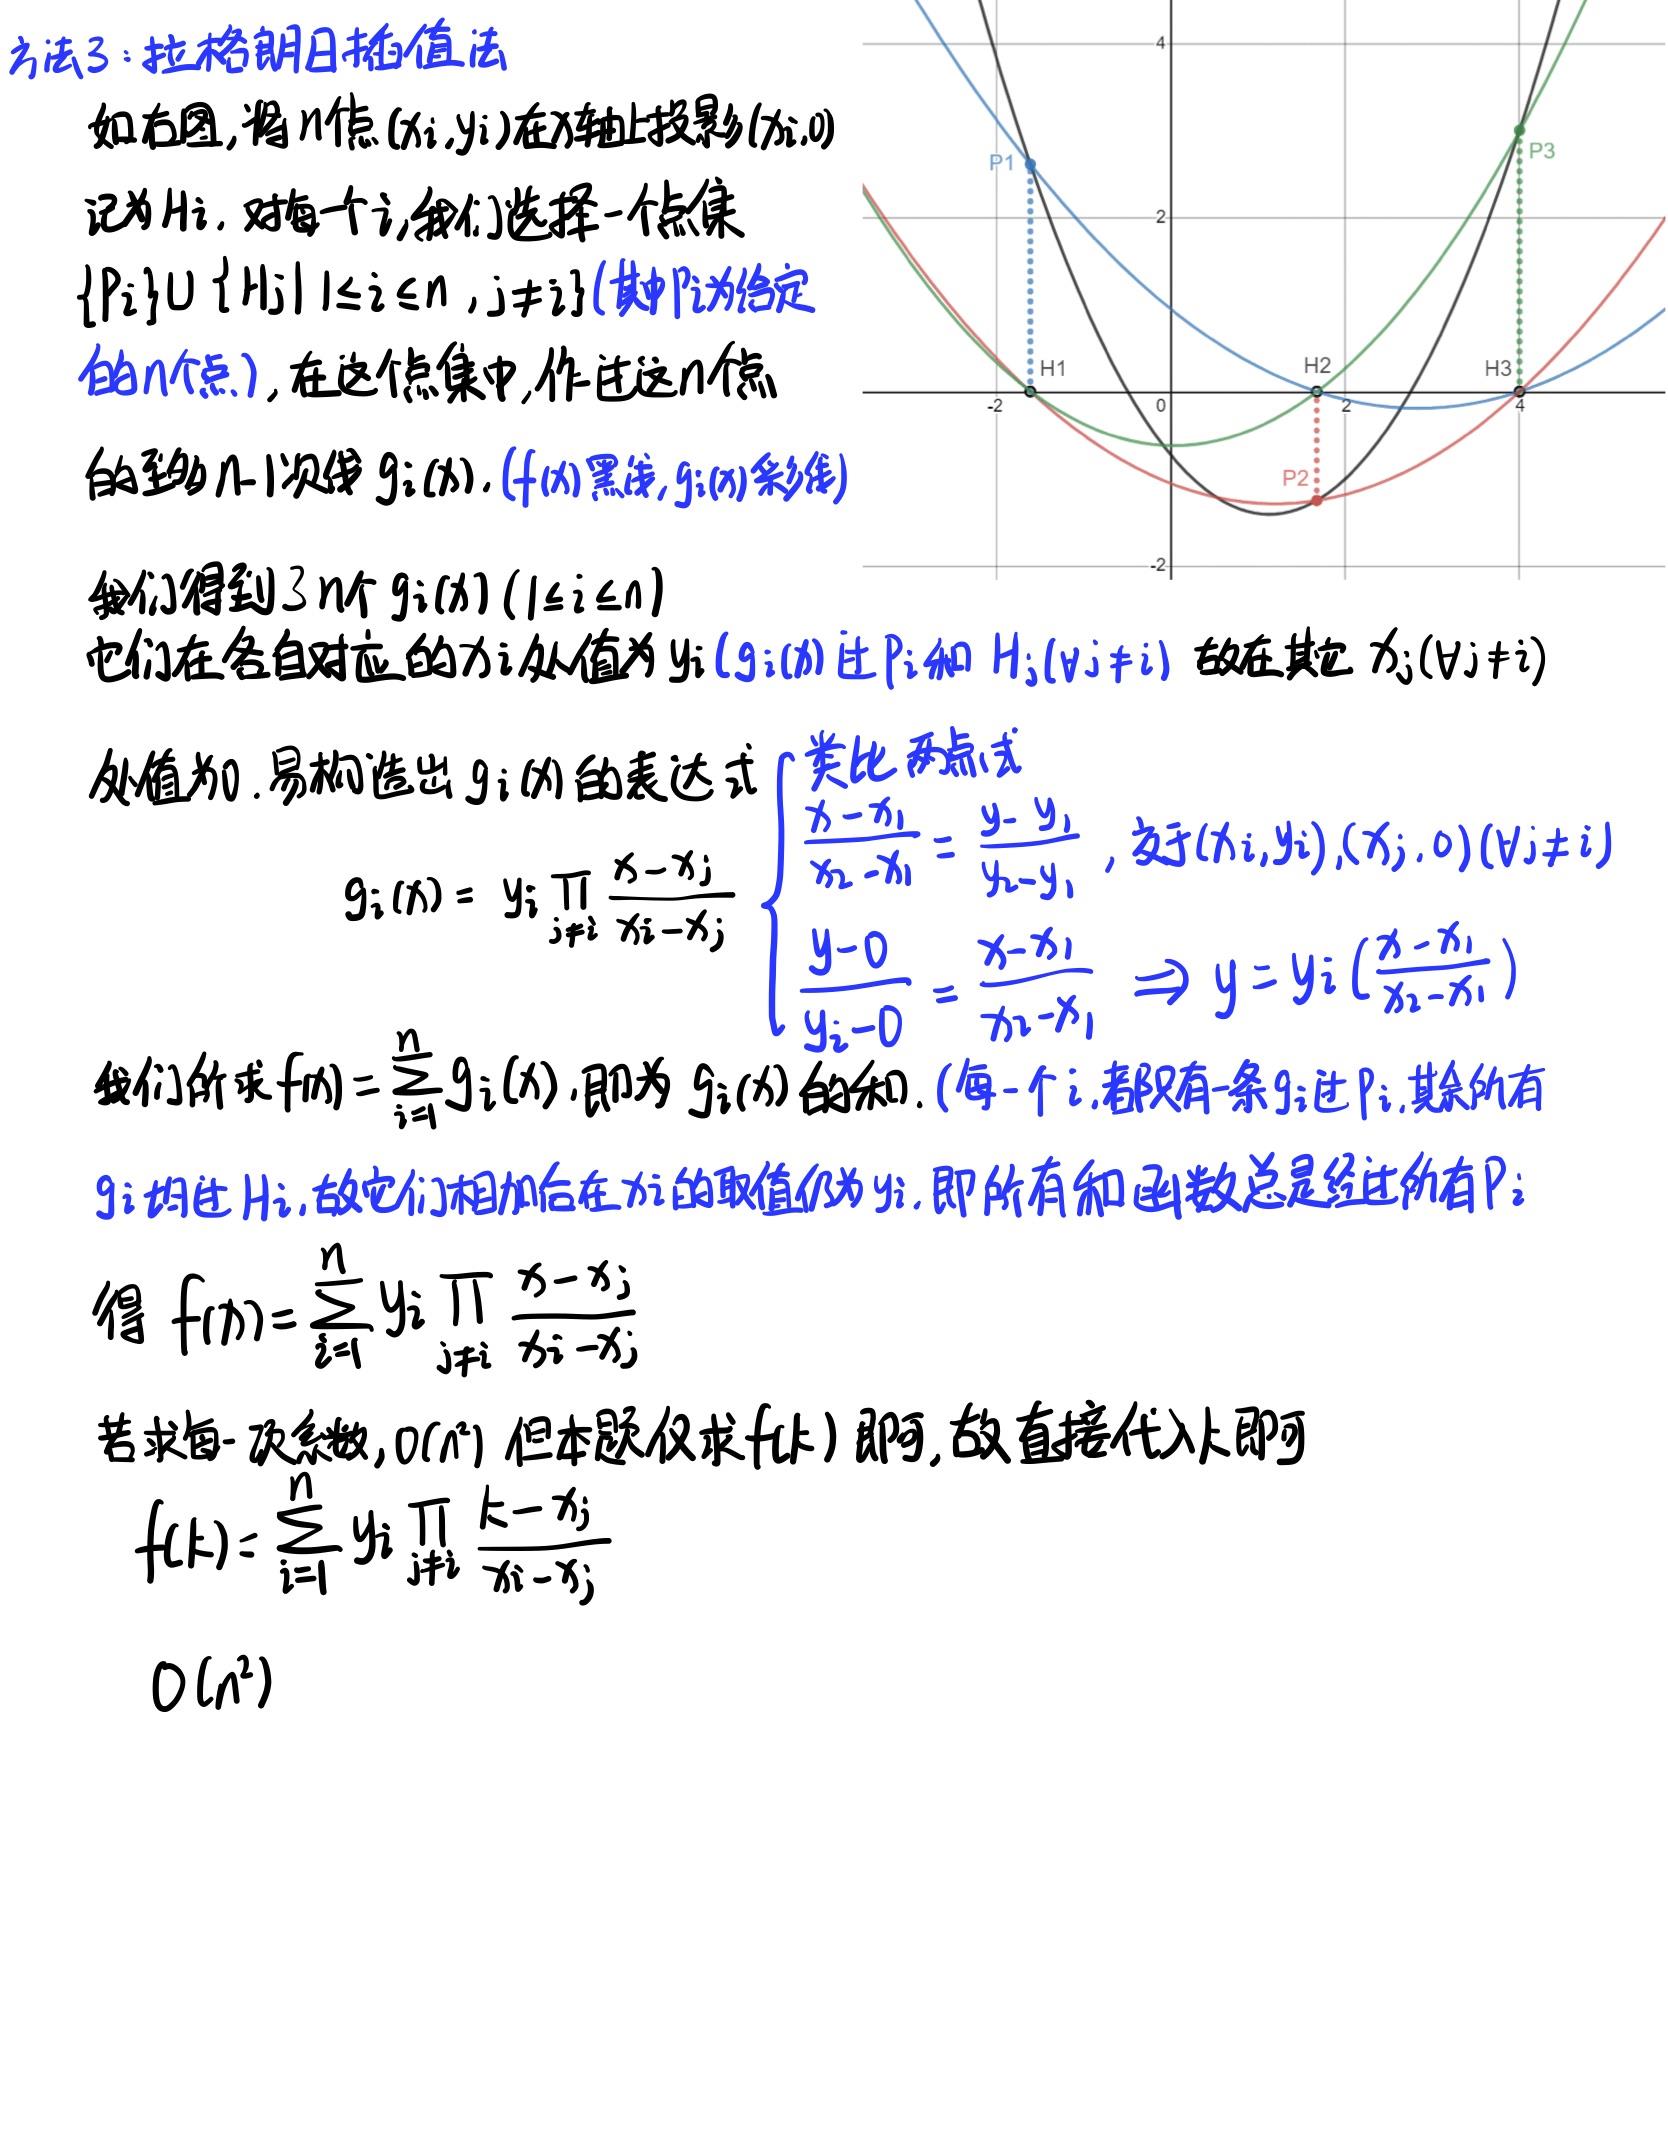 方法3:拉格朗日插值法
如右图,将n个点(xi,yi)在x轴上投影(xi,0)
记为Hi. 对每一个i,我们选择一个点集
{Pi}∪{Hj|1≤i≤n,j≠i}(其中Pi为给定
的n个点),在这个点集中,作过这n个点
的至多n-1次线gi(x).(f(x)黑线,gi(x)彩线)
4
2
-2
-2
0
2
4
P1
P2
P3
H1
H2
H3
我们得到了n个gi(x)(1≤i≤n)
它们在各自对应的xi处值为yi(gi(x)过Pi和Hj(∀j≠i) 故在其它xj(∀j≠i)
处值为0.易构造出gi(x)的表达式
gi(x) = yi ∏_{j≠i} (x-xj)/(xi-xj)
类比两点式
(x-x1)/(x2-x1) = (y-y1)/(y2-y1) ,交于(xi,yi),(xj,0)(∀j≠i)
(y-0)/(yi-0) = (x-x1)/(x2-x1) ⇒ y=yi((x-x1)/(x2-x1))
我们所求f(x)=∑_{i=1}^{n} gi(x),即为gi(x)的和.(每一个i,都只有一条gi过Pi,其余所有
gi均过Hi,故它们相加后在xi的取值仍为yi.即所有和函数总是经过所有Pi
得 f(x)=∑_{i=1}^{n} yi ∏_{j≠i} (x-xj)/(xi-xj)
若求每一项系数,O(n²) 但本题仅求f(k)即可,故直接代入k即可
f(k)=∑_{i=1}^{n} yi ∏_{j≠i} (k-xj)/(xi-xj)
O(n²)